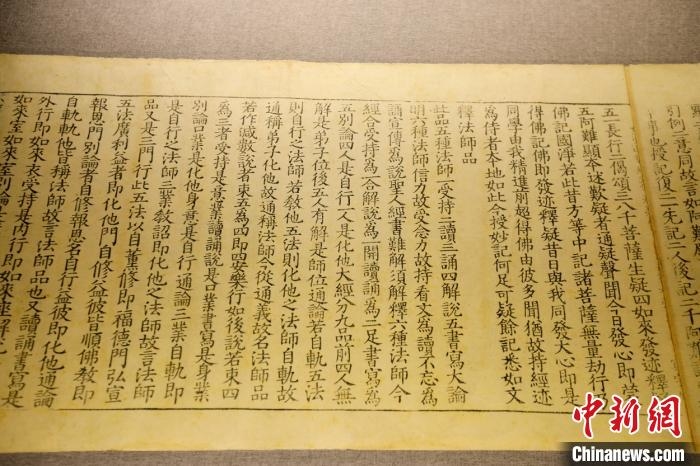 引例二意同故言如
事也授記復二先記二人後記二千
五一長行二偈頌三八千菩薩生疑四如來發迹釋
五阿難顯本述歎疑者通疑聲聞今日發心即當
佛記國淨若此昔方等中記諸菩薩無量劫行
得佛記佛即發迹釋疑昔日與我同發大心即是
同學由我精進前超得佛由彼多聞猶故持經迹
為侍者本地如此今授妙記何足可疑餘記悉如文
釋法師品
此品五種法師一受持二讀三誦四解說五書寫大論
明六種法師信力故受念力故持看文為讀不忘為
誦宣傳為說聖人經書難解須解釋六種法師今
經合受持為一合解說為一開讀誦為二足書寫為
五別論四人是自行一人是化他大經分九品前四人無
解是弟子位後五人有解是師位通論若自軌五法
則自行之法師若教他五法則化他之法師自軌故
通稱弟子化他故通稱法師今從通義故名法師品
若作減數說者束五為四即安樂行如後說若束四
為三者受持是意業讀誦說是口業書寫是身業
別論口業是化他身意是自行通論三業自軌即
是自行之法師三業教詔即化他之法師故言法師
品又是三門行此五法以自薰修即福德門弘宣
五法廣利益者即化他門自修益彼皆順佛教即
報恩門別論者自修報恩名自行益彼即化他通論
自軌軌他皆稱法師故言法師品也又讀誦書寫是
外行即如來衣受持是內行即如來座
如來室如來
中新网
Chinanews.com